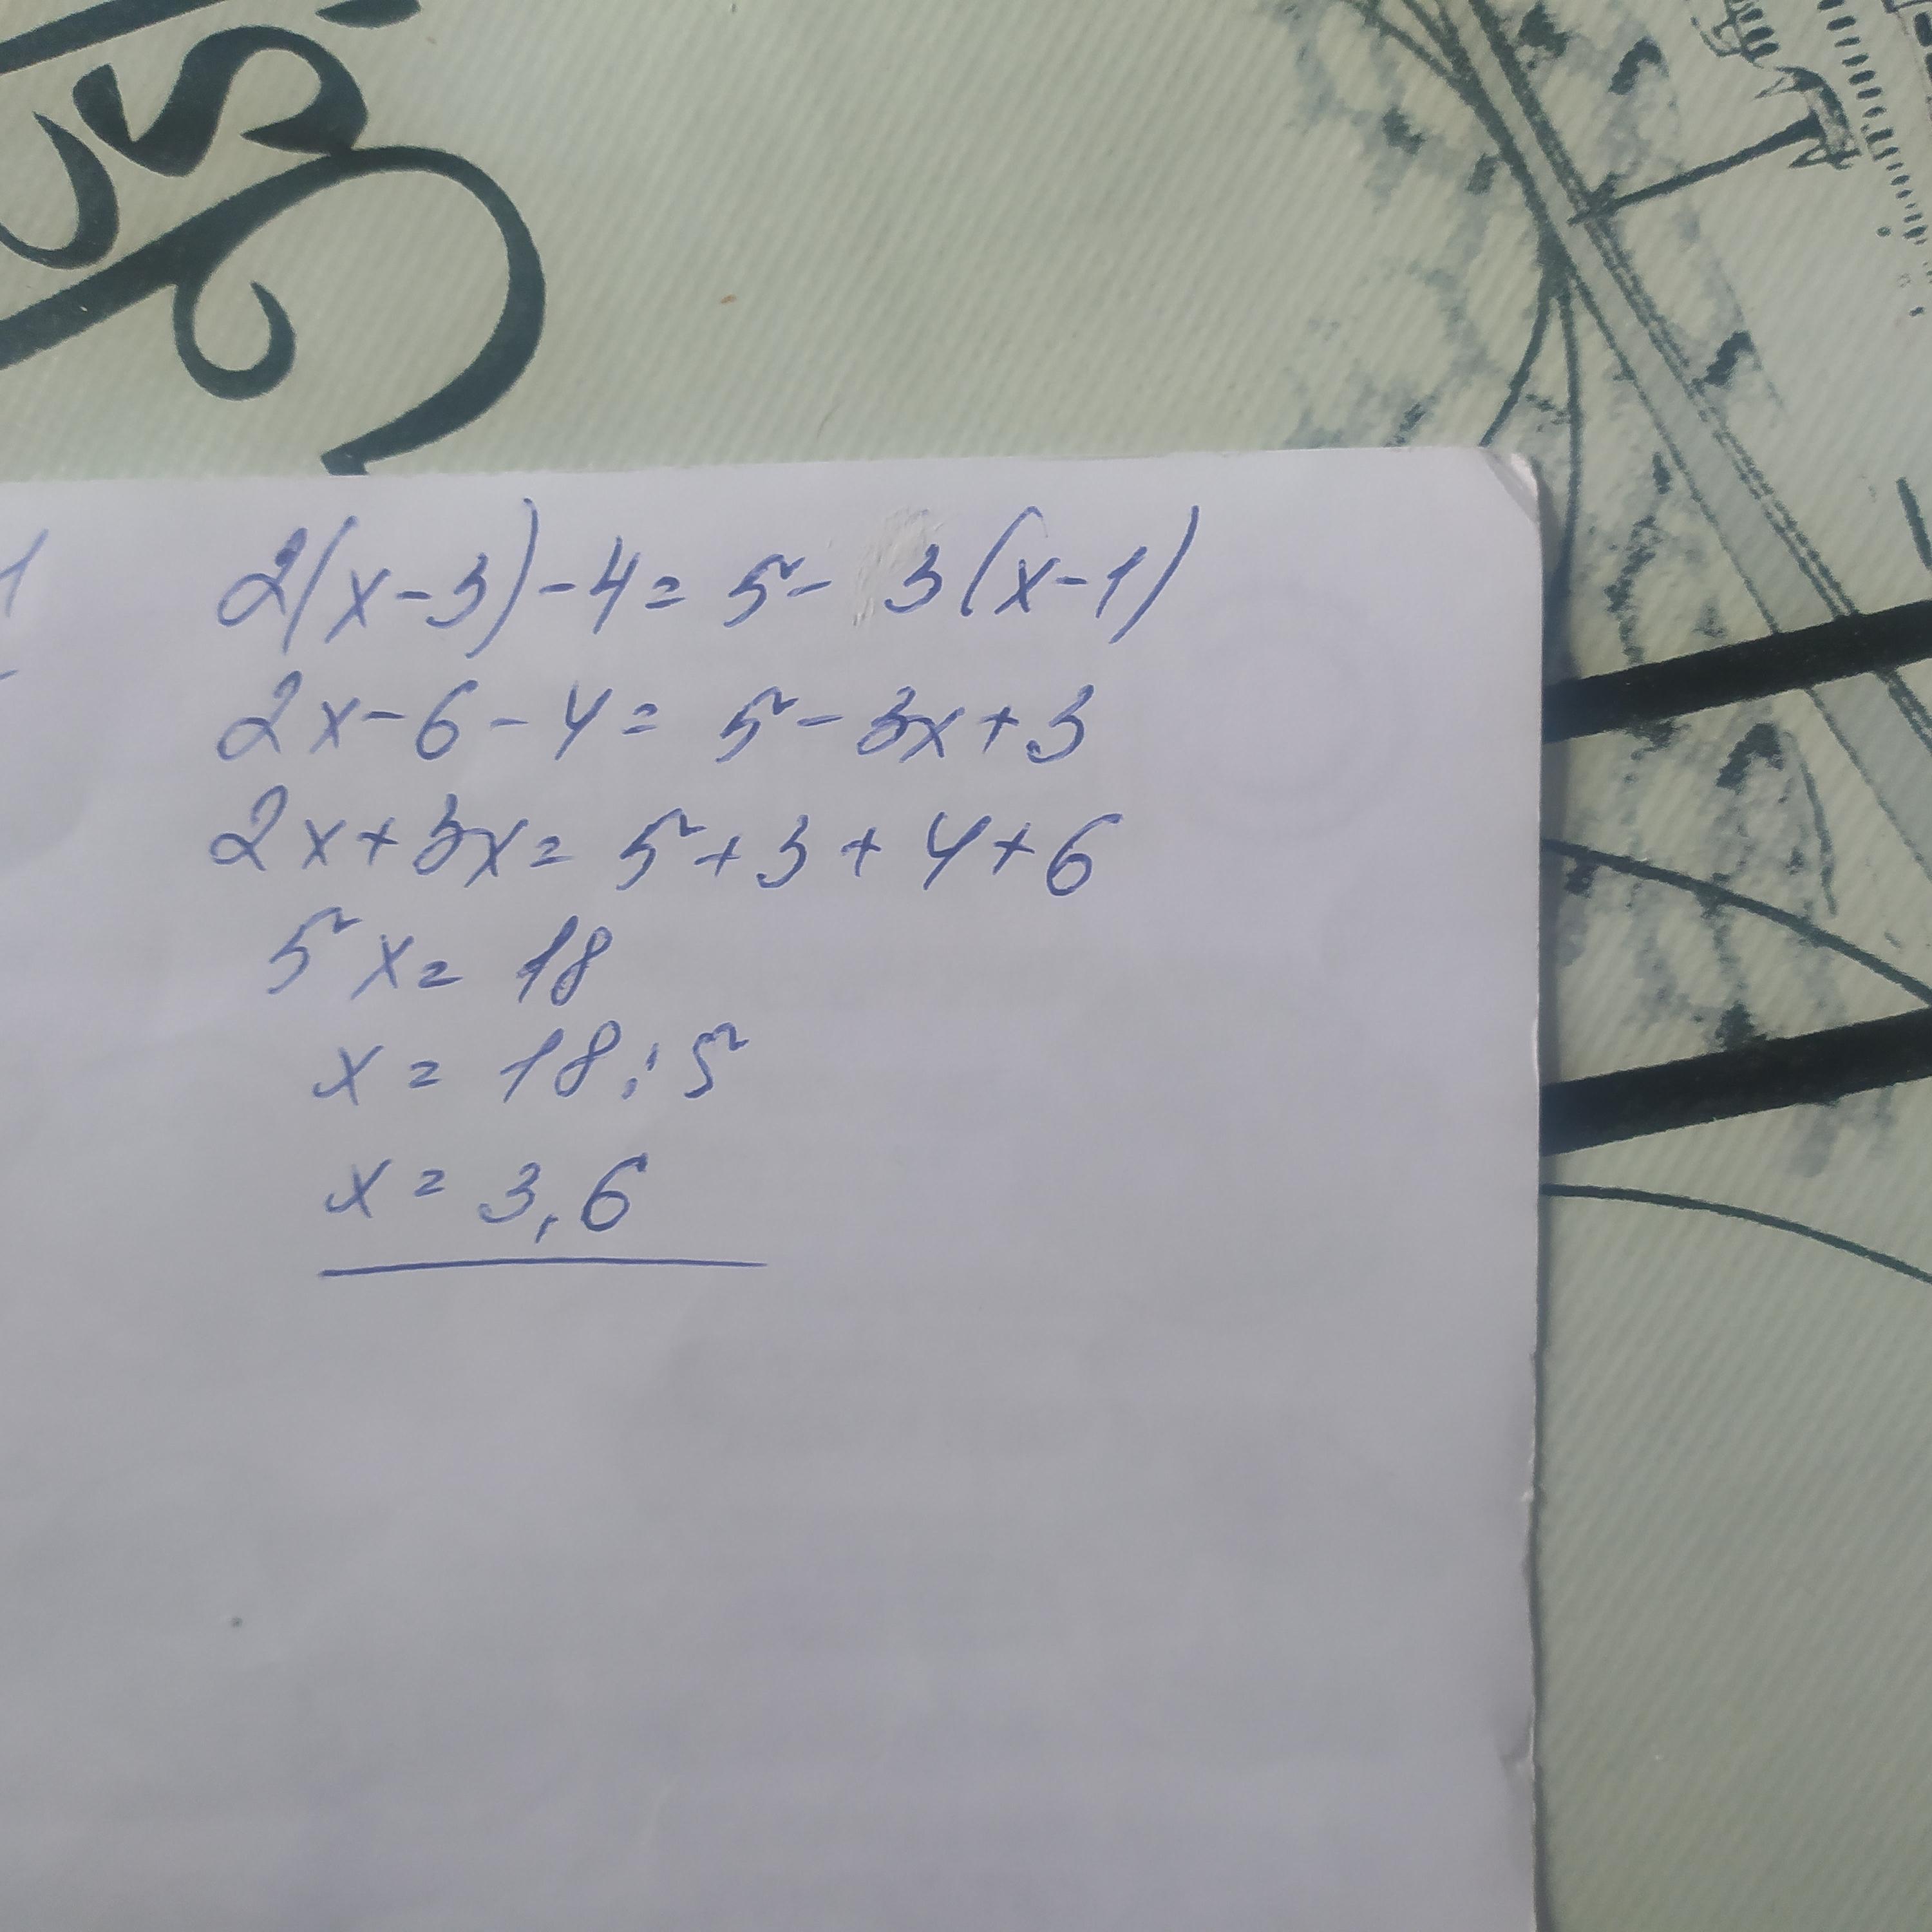 1
2(x-3)-4=5-3(x-1)
2x-6-4=5-3x+3
2x+3x=5+3+4+6
5x=18
x=18:5
x=3,6